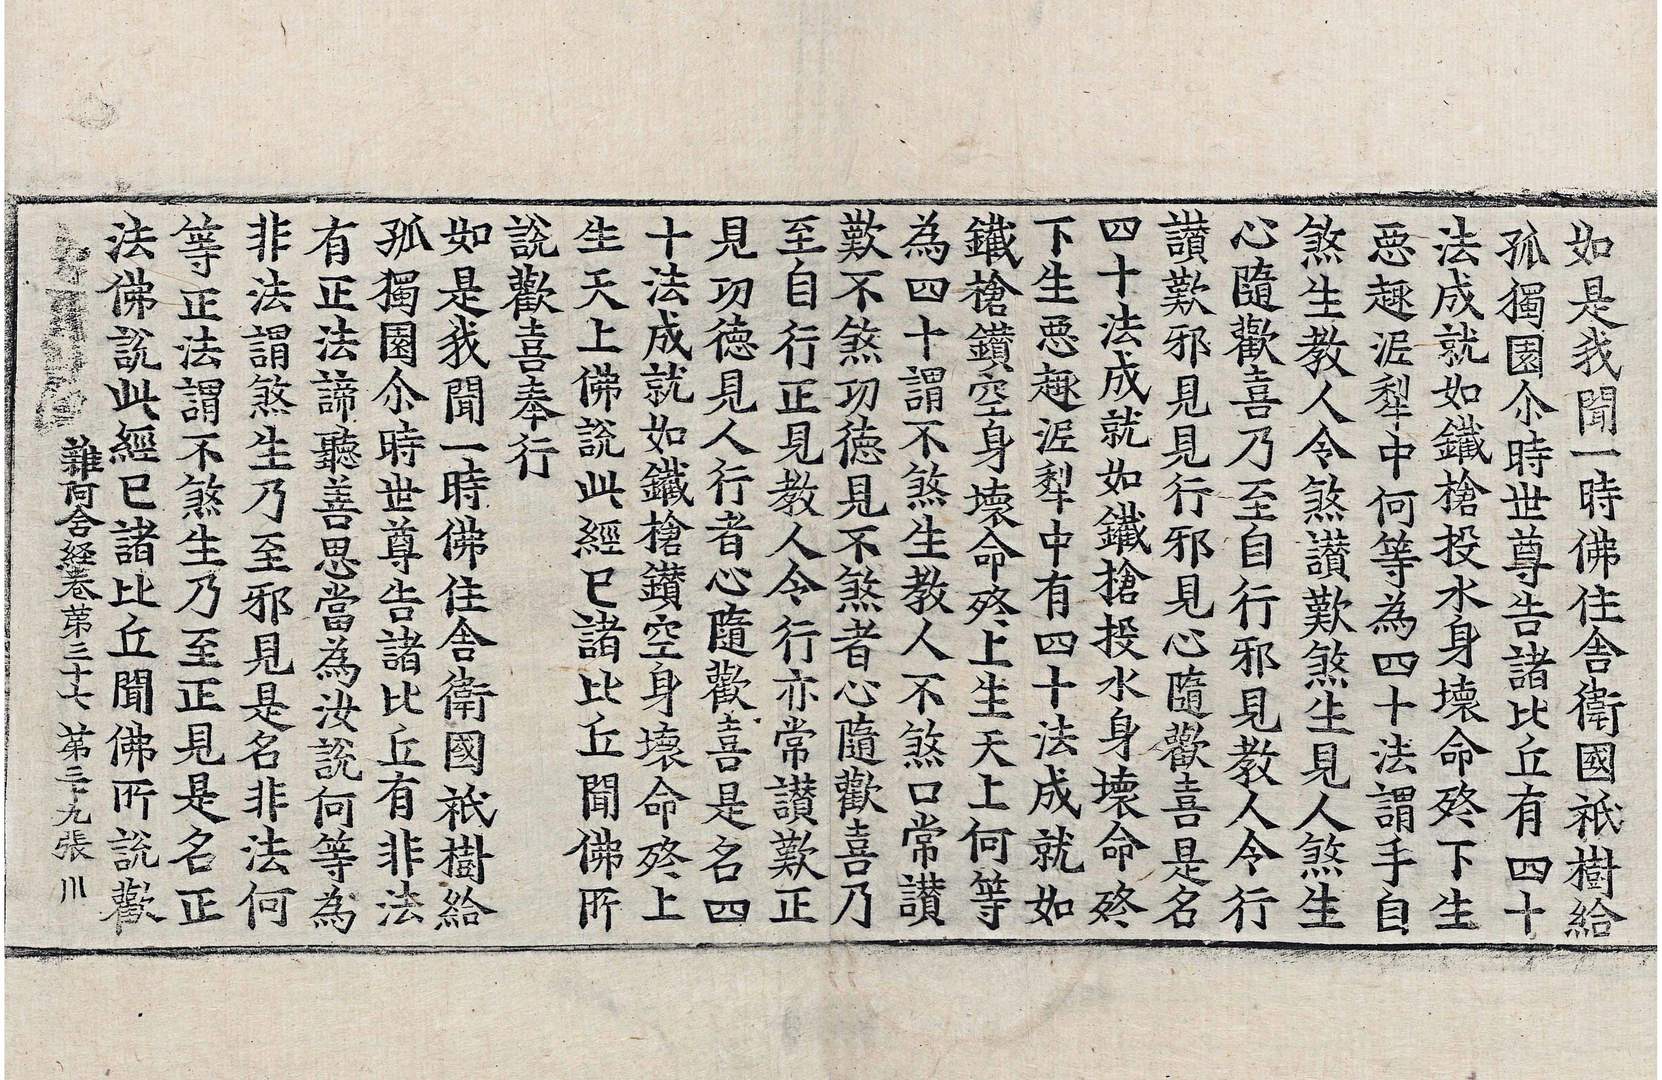 如是我聞一時佛住舍衛國祇樹給
孤獨園尒時世尊告諸比丘有四十
法成就如鐵槍投水身壞命終下生
惡趣泥犁中何等為四十法謂手自
煞生教人令煞讚歎煞生見人煞生
心隨歡喜乃至自行邪見教人令行
讃歎邪見見行邪見心隨歡喜是名
四十法成就如鐵槍投水身壞命終
下生惡趣泥犁中有四十法成就如
鐵槍鑚空身壞命終上生天上何等
為四十謂不煞生教人不煞口常讃
歎不煞功德見不煞者心隨歡喜乃
至自行正見教人令行亦常讃歎正
見功德見人行者心隨歡喜是名四
十法成就如鐵槍鑚空身壞命終上
生天上佛說此經已諸比丘聞佛所
說歡喜奉行
如是我聞一時佛住舍衛國祇樹給
孤獨園尒時世尊告諸比丘有非法
有正法諦聽善思當為汝說何等為
非法謂煞生乃至邪見是名非法何
等正法謂不煞生乃至正見是名正
法佛說此經已諸比丘聞佛所說歡
雜阿含経卷苐三十七 苐三十九張 川